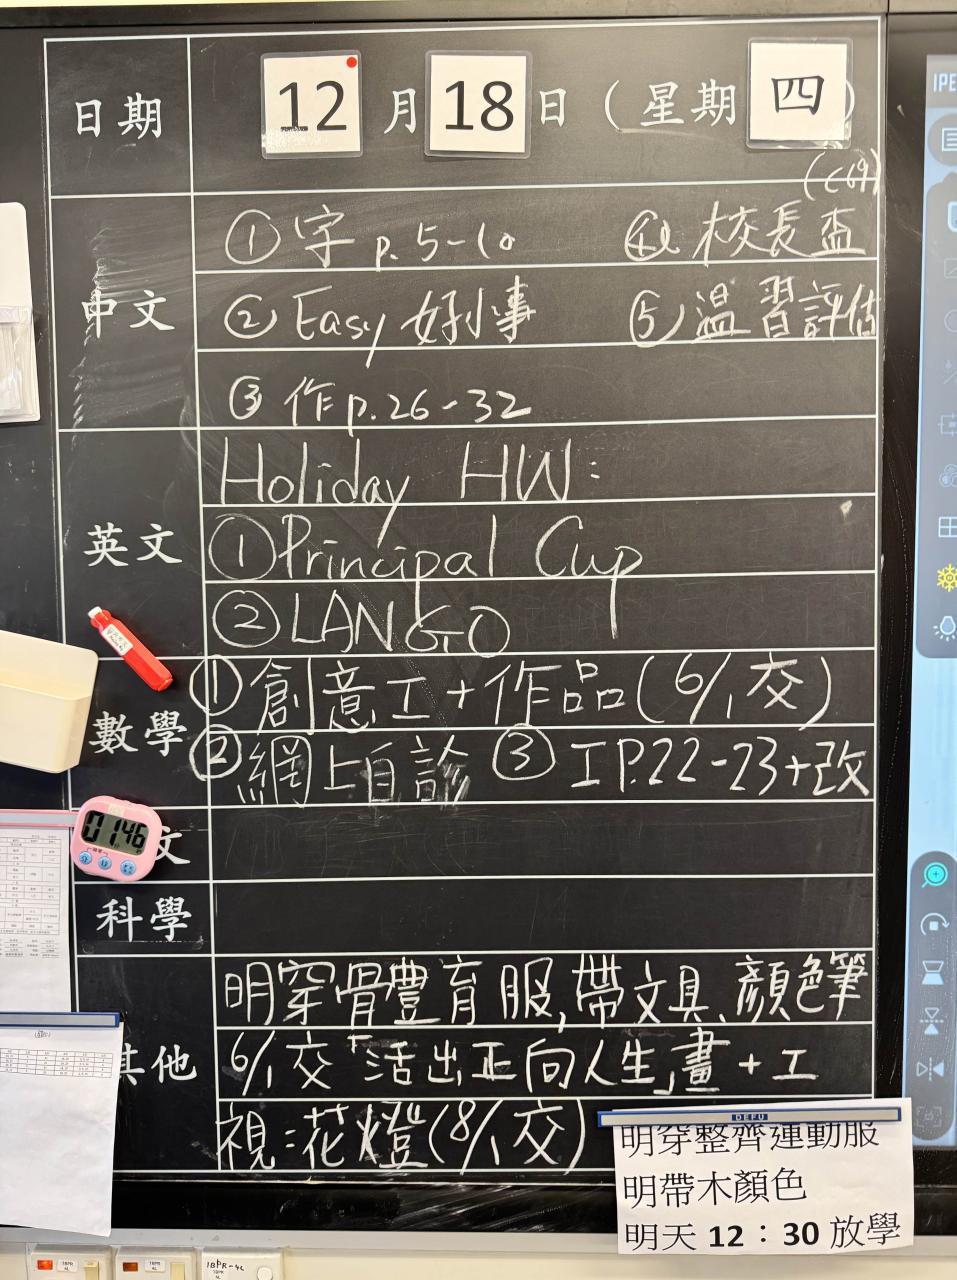 日期 12 月 18 日 (星期 四)
中文
① 字 p.5-10
④ 校長盃
② Easy 好小事
⑤ 溫習評估
③ 作 p.26-32
英文
Holiday HW:
① Principal Cup
② LANGO
數學
① 創意工+作品(6/1交)
② 網上自診 ③ 工P.22-23+改
文
科學
其他
明穿體育服,帶文具、顏色筆
6/1交「活出正向人生」畫+工
視:花燈(8/1交)
DEFU
明穿整齊運動服
明帶木顏色
明天 12:30 放學
0146
IPE
1BPR-4L